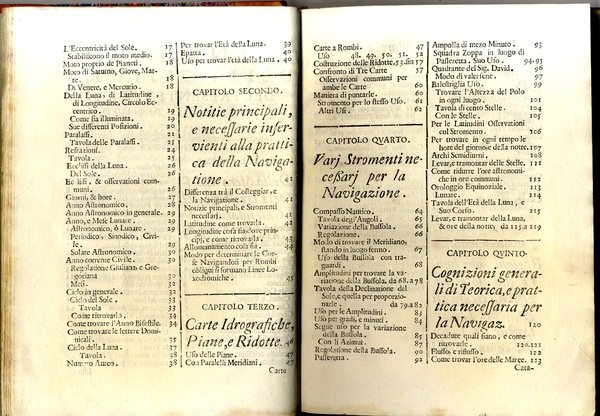 L'Eccentricità del Sole. 17
Stabiliscono il moto medio. 17
Moto proprio de Pianeti. 18
Moto di Saturno, Giove, Mar-
te. 18
Di Venere, e Mercurio. 18
Della Luna di Latitudine,
di Longitudine, Circolo Ec-
centrico. 19
Come sia illuminata. 19
Sue differenti Posizioni. 20
Paralassi. 21
Tavola delle Paralassi. 23
Refrazioni. 24
Tavola. 25
Ecclissi della Luna. 25
Del Sole. 26
Ecclissi, & osservationi com-
muni. 26
Giorni, & hore. 27
Anno Astronomico. 28
Anno Astronomico in generale. 29
Anno, e Mese Lunare. 29
Astronomico, ò Lunare. 29
Periodico, Sinodico, Civi-
le. 29
Solare Astronomico. 30
Anno corrente Civile. 30
Regolatione Giuliana, e Gre-
goriana 30
Mesi. 31
Ciclo in generale. 32
Ciclo del Sole 33
Tavola 33
Come ritrovarlo. 34
Come trovare l'Anno Bisestile. 34
Come trovare le lettere Domi-
nicali. 35
Ciclo della Luna 37
Tavola. 38
Numero Aureo. 38
Per trovar l'Età della Luna. 39
Epatta. 40
Uso per trovar l'Età della Luna. 40
CAPITOLO SECONDO.
Notitie principali,
e necessarie inser-
vienti alla pratti-
ca della Naviga-
tione. 41
Differenza trà il Costeggiar, e
la Navigatione. 41
Notizie principali, e Stromenti
necessarj. 41
Latitudine come trovarla. 41
Longitudine cosa sia dove prin-
cipj, e come ritrovarla. 43
Allontanamento cosa sia. 44
Modo per determinare le Cor-
se Navigandosi per Rombi
obliqui si formano Linee Lo-
xodromiche. 45
CAPITOLO TERZO.
Carte Idrografiche,
Piane, e Ridotte. 46
Uso delle Piane. 46
Con Paralleli Meridiani. 47
Carte
Carte a Rombi. 47
Uso 48. 49. 50. 51. 52
Costruzione delle Ridotte, 53. sin 57
Confronto di Tre Carte 57
Osservationi communi per
ambe le Carte 60
Maniera di puntarle. 60
Stromento per lo stesso Uso. 61
Altri Usi. 62
CAPITOLO QUARTO.
Varj Stromenti ne-
cessarj per la
Navigazione.
Compasso Nautico. 64
Tavola degl'Angoli. 65
Variazione della Bussola. 65
Regolatione. 66
Modo di trovare il Meridiano;
stando in luogo fermo. 67
Uso della Bussola con tra-
guardi. 68
Amplitudini per trovare la va-
riatione della Bussola. da 68. a 78
Tavola della Declinatione del
Sole, e quella per proporzio-
narle. da 79. a 82
Uso per le Amplitudini. 83
Uso per gradi, e minuti. 84
Segue uso per la variatione
della Bussola. 84
Con li Azimut. 87
Regolatione della Bussola. 90
Passeretta. 92
Ampolla di mezo Minuto. 93
Squadra Zoppa in luogo di
Passeretta. Suo Uso. 94-95
Quadrante del Sig. David. 96
Modo di valersene. 97
Balestriglia Uso. 99
Trovare l'Altezza del Polo
in ogni luogo. 101
Tavola di cento Stelle. 104
Con le Stelle. 105
Per le Latitudini Osservationi
col Stromento. 106
Per trovare in ogni tempo le
hore del giorno e della notte. 107
Archi Semidiurni. 108
Levar, e tramontar delle Stelle. 111
Come ridurre l'ore astronomi-
che in ore communi. 112
Orologio Equinoziale. 113
Lunare. 114
Tavola dell'Età della Luna, e
Suo Corso. 115
Levar, e tramontar della Luna,
& ore della notte, da 115. a 119
CAPITOLO QUINTO.
Cognizioni genera-
li di Teorica, e prat-
tica necessaria per
la Navigaz. 120
Decadute quali siano, e come
ritrovarle. 120, 121
Flusso, e riflusso. 122
Come trovar l'ore delle Maree. 123
Cata-